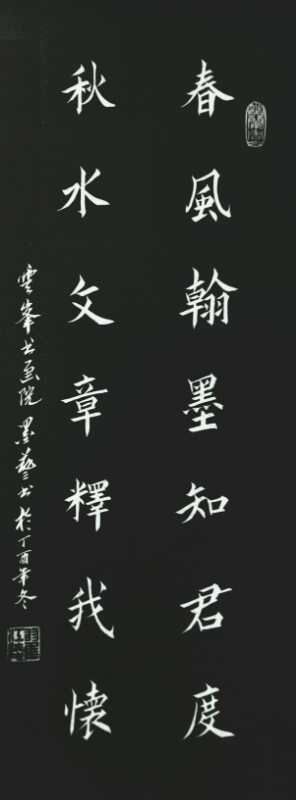 春風翰墨知君度
秋水文章釋我懷
雲峯书画院墨藝书於丁酉年冬